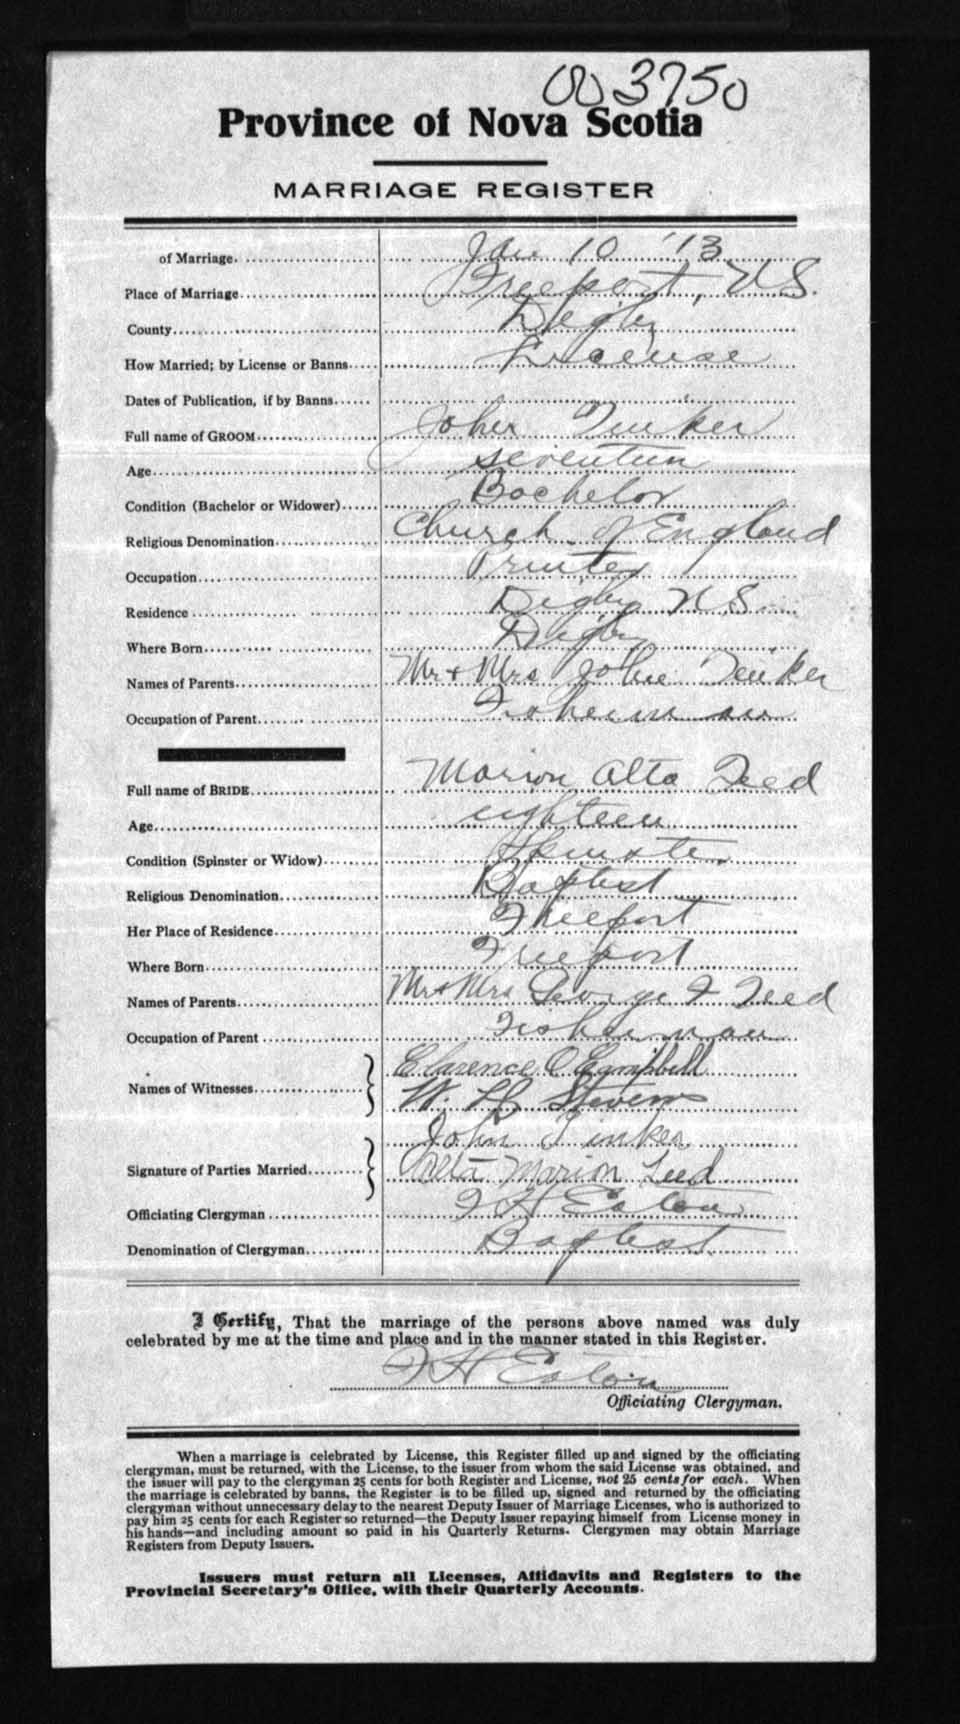 003750
Province of Nova Scotia
MARRIAGE REGISTER
of Marriage. Jan 10 '13
Place of Marriage Freeport, N.S.
County Digby
How Married; by License or Banns License
Dates of Publication, if by Banns
Full name of GROOM John Tinker
Age seventeen
Condition (Bachelor or Widower) Bachelor
Religious Denomination Church of England
Occupation Printer
Residence Digby N.S.
Where Born Digby
Names of Parents Mr & Mrs John Tinker
Occupation of Parent Fisherman
Full name of BRIDE Marion Alta Teed
Age eighteen
Condition (Spinster or Widow)
Religious Denomination Baptist
Her Place of Residence Freeport
Where Born Freeport
Names of Parents Mr & Mrs George F Teed
Occupation of Parent Fisherman
Names of Witnesses Clarence O Campbell
W. H. Stevens
John Tinker
Signature of Parties Married Alta Marion Teed
Officiating Clergyman F H Eaton
Denomination of Clergyman Baptist
I Certify, That the marriage of the persons above named was duly
celebrated by me at the time and place and in the manner stated in this Register.
F H Eaton
Officiating Clergyman.
When a marriage is celebrated by License, this Register filled up and signed by the officiating
clergyman, must be returned, with the License, to the issuer from whom the said License was obtained, and
the issuer will pay to the clergyman 25 cents for both Register and License, not 25 cents for each. When
the marriage is celebrated by banns, the Register is to be filled up, signed and returned by the officiating
clergyman without unnecessary delay to the nearest Deputy Issuer of Marriage Licenses, who is authorized to
pay him 25 cents for each Register so returned—the Deputy Issuer repaying himself from License money in
his hands—and including amount so paid in his Quarterly Returns. Clergymen may obtain Marriage
Registers from Deputy Issuers.
Issuers must return all Licenses, Affidavits and Registers to the
Provincial Secretary's Office, with their Quarterly Accounts.